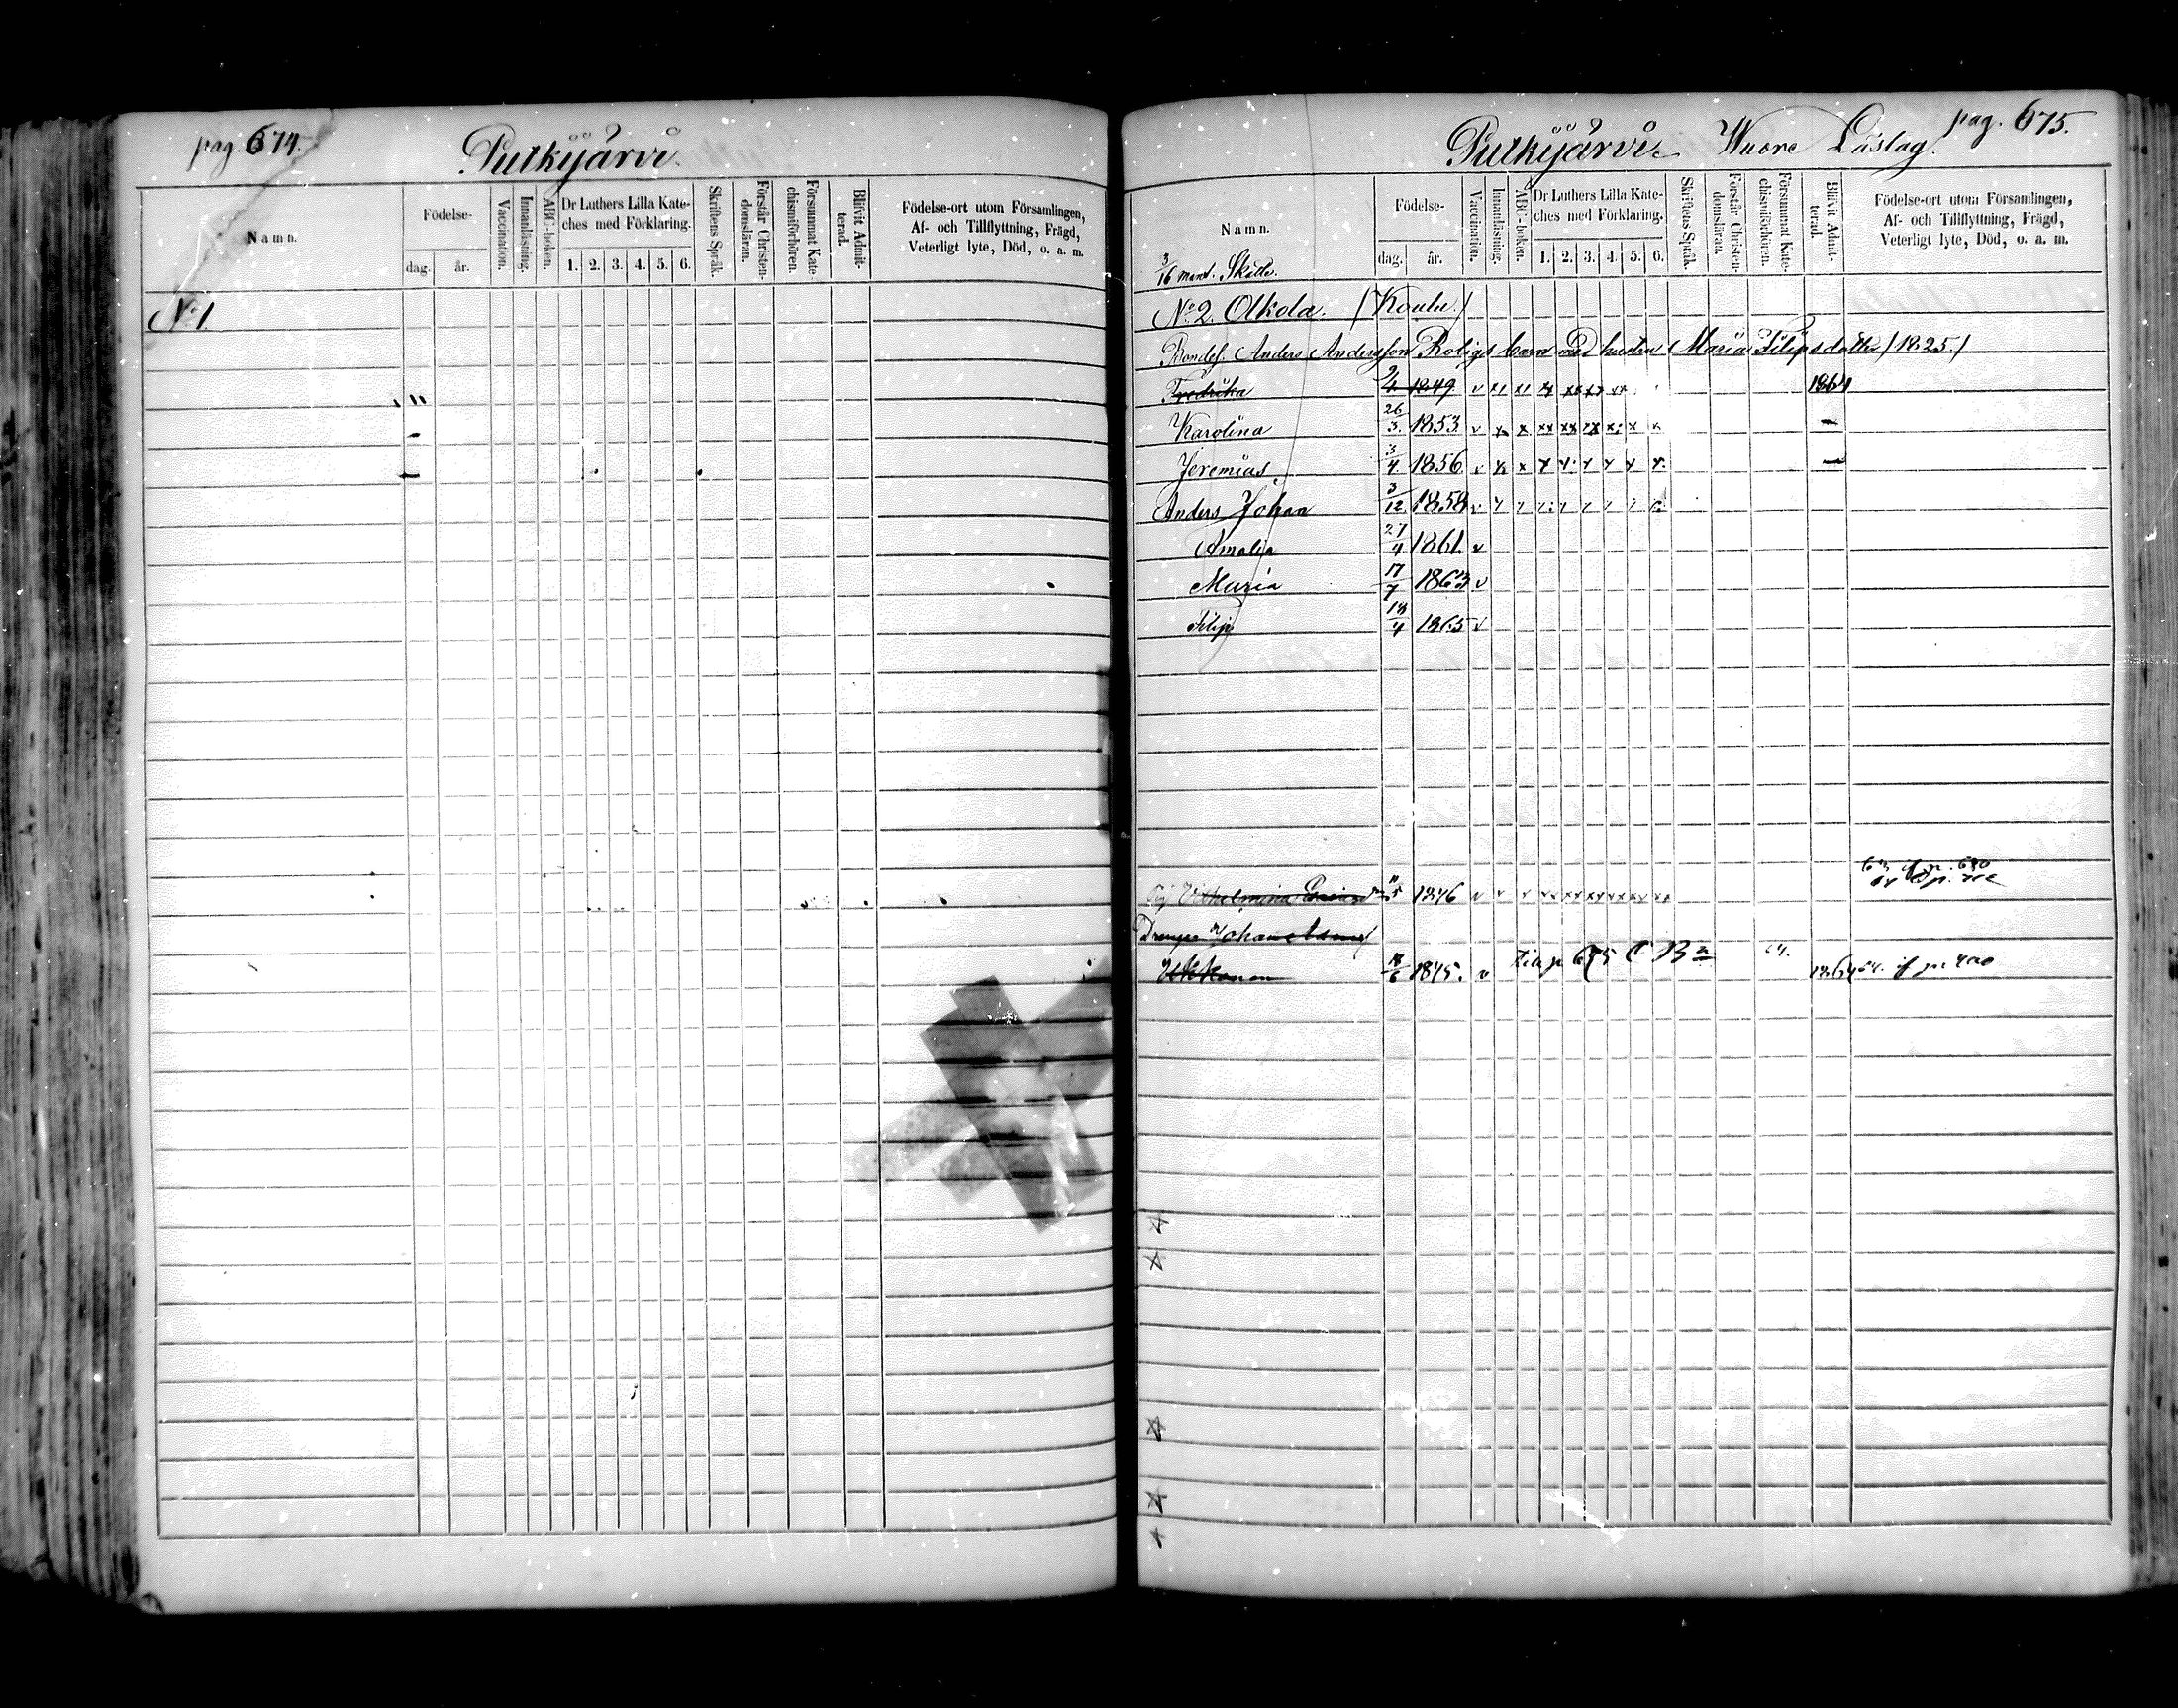 pag. 674.
Putkijärvi.
Namn.
Födelse-
dag. år.
Vaccination.
Innanläsning.
ABC-boken.
Dr Luthers Lilla Kate-
ches med Förklaring.
1. 2. 3. 4. 5. 6.
Skriftens Språk.
Förstår Christen-
domsläran.
Försummat Kate-
chismiförhören.
Blifvit Admit-
terad.
Födelse-ort utom Församlingen,
Af- och Tillflyttning, Frägd,
Veterligt lyte, Död, o. a. m.
No 1
pag. 675.
Putkijärvi. Wuore Läslag.
Namn.
Födelse-
dag. år.
Vaccination.
Innanläsning.
ABC-boken.
Dr Luthers Lilla Kate-
ches med Förklaring.
1. 2. 3. 4. 5. 6.
Skriftens Språk.
Förstår Christen-
domsläran.
Försummat Kate-
chismiförhören.
Blifvit Admit-
terad.
Födelse-ort utom Församlingen,
Af- och Tillflyttning, Frägd,
Veterligt lyte, Död, o. a. m.
3/16 mant. Skatte.
No 2. Olkola. (Koulu)
Bondef. Anders Andersson Roligs barn med hustru Maria Filipsdotter (1825)
Fredrika 9/4 1849 v 1864
Karolina 26/3 1853 v
Jeremias 3/4 1856 v
Anders Johan 3/12 1858 v
Amalia 27/4 1861 v
Maria 17/7 1863 v
Filip 18/4 1865 v
Vilhelmina 1846 v
Drengen Johan
18/6 1845. v 675 1864